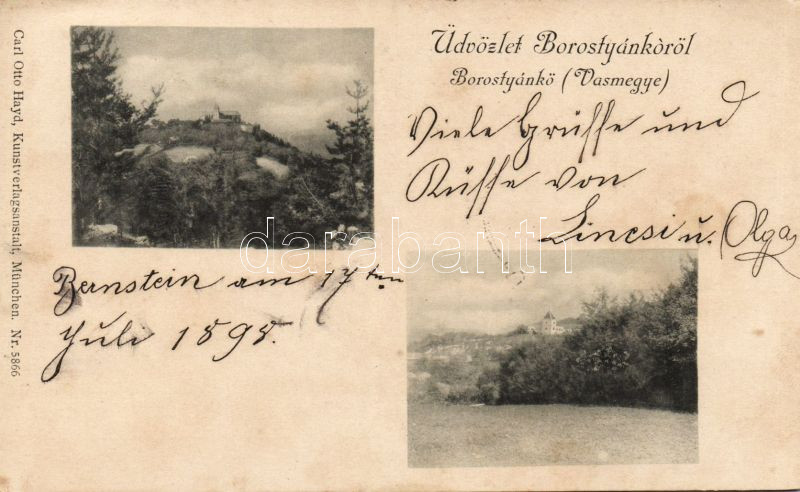 Üdvözlet Borostyánkőről
Borostyánkő (Vasmegye)
Viele Grüsse und
Küsse von
Lincsi u. Olga
Bernstein am 17ten
Juli 1898.
Carl Otto Hayd, Kunstverlagsanstalt, München. Nr. 5866
darabanth